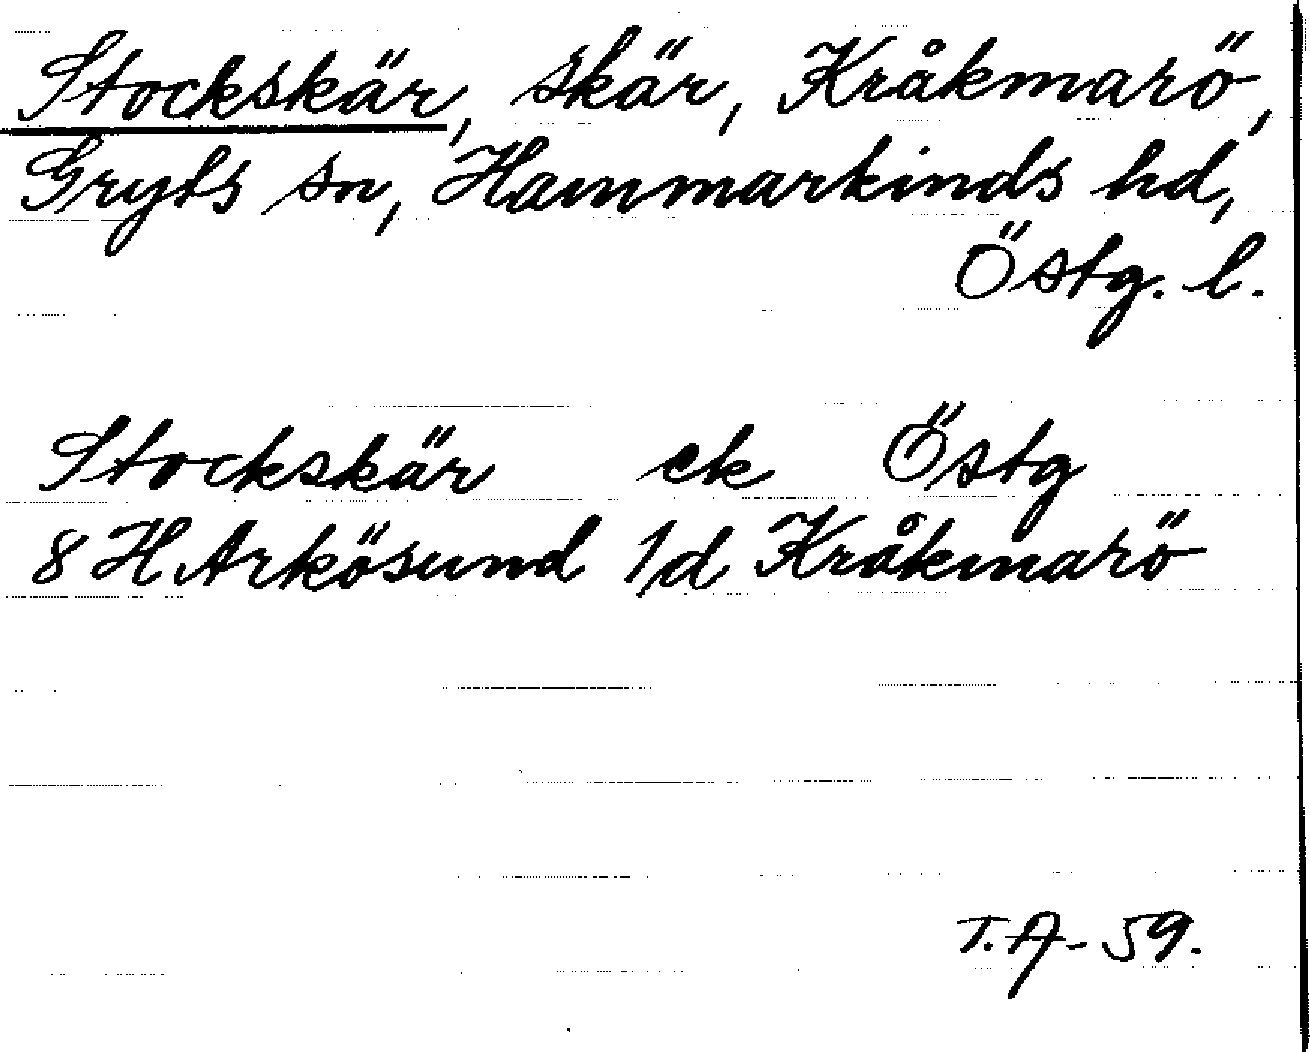 Stockskär, skär, Kråkmarö,
Gryts sn, Hammarkinds hd,
Östg. l.
Stockskär ek Östg
8 H Arkösund 1d Kråkmarö
T.A-59.